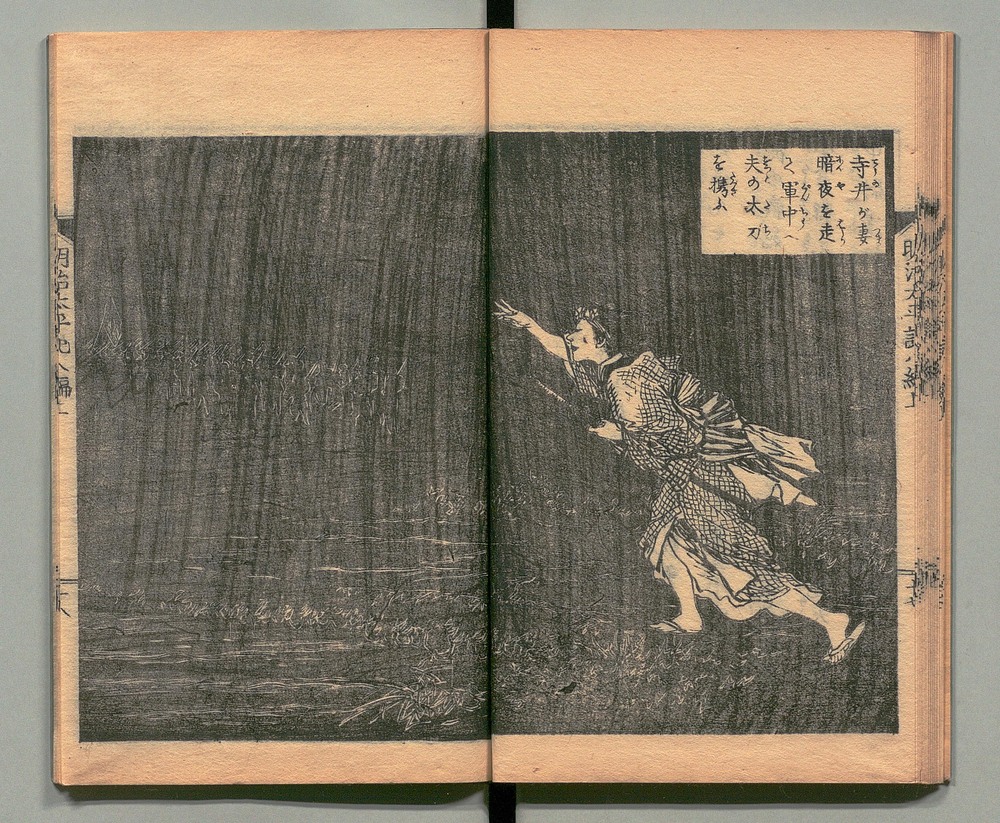 寺井が妻
暗夜を走
て軍中へ
夫の太刀
を携ふ
明治太平記八編上
明治太平記八編上